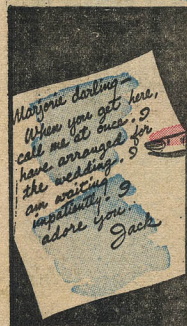 Marjorie darling—
When you get here,
call me at once. I
have arranged for
the wedding. I
am waiting
impatiently. I
adore you.
Jack